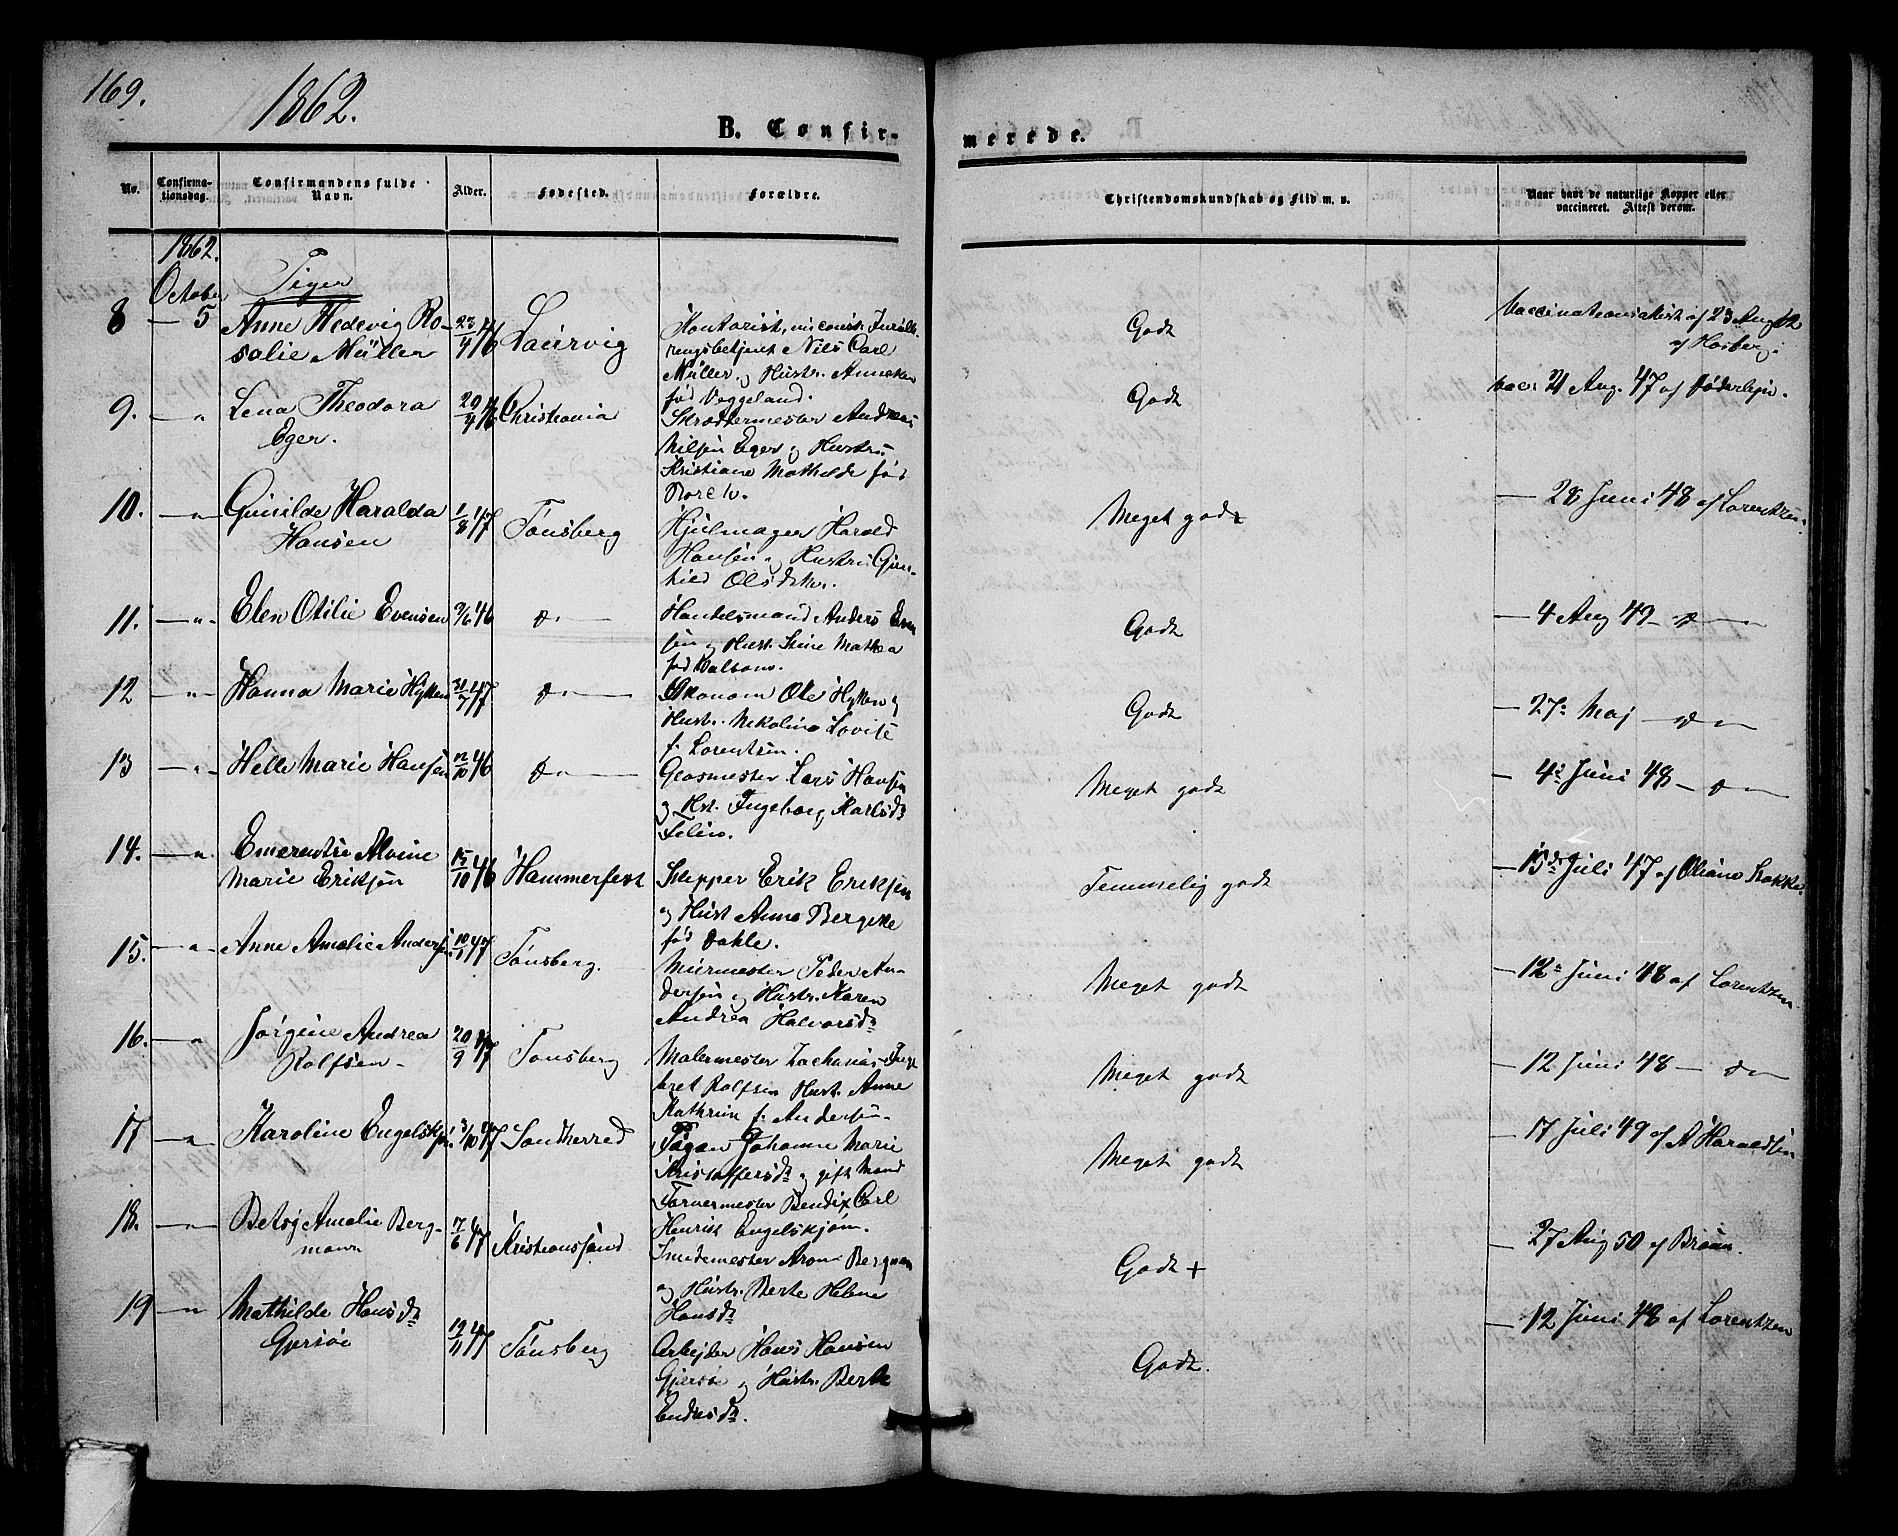 169.
1862.
B. Confir-
merede.
No.
Confirma-
tionsdag.
Confirmandens fulde
Navn.
Alder.
Fødested.
Forældre.
Christendomskundskab og Flid m. v.
Naar havt de naturlige Kopper eller
vaccineret. Attest derom.
1862.
October
Piger
8 — 5 Anne Hedevig Ro-
salie Müller
23/4 46 Laurvig
Kontorist,
Nils Carl
Müller og Hustr. Anneken
ød Veggeland.
Godt
Vaccinationsattest af 23 Aug
9. — " Lena Theodora
Eger.
20/4 46 Christiania
Skræddermester Andreas
Nilsen Eger og Hustru
Kristiane Mathilde fød
Borch.
Godt
vacc 21 Aug. 47 af
10. — " — Gunilde Haralda
Hansen
1/8 47 Tønsberg
Hjulmager Harald
Hansen og Hustru Gun-
hild Olsdtr.
Meget godt
— 28 Juni 48 af Lorentzen
11. — " — Elen Otilie Evensen 9/6 46 do —
Handelsmand Anders Even
sen og Hust. Mathea
fød
Godt
— 4 Aug 49 — do —
12 — " — Hanna Marie Hytten 31/7 47 do —
Økonom Ole Hytten og
Hustr. Nikoline Lovise
f. Lorentsen.
Godt
— 27 Maj — do —
13 — " — Helle Marie Hansen 12/10 46 do —
Lars Hansen
og Hst. Ingeborg Karlsdr
Felin.
Meget godt
— 4 Juni 48 — do —
14. — " Emerentse Alvine
Marie Eriksen
15/10 46 Hammerfest
Skipper Erik Eriksen
og Hust Anna Bergitte
fød Dahle.
Temmelig godt
— 15de Juli 47 af Oliane Bakke
15. — " Anne Amalie Andersen 10/ 47 Tønsberg.
Murmester Peder An-
dersen og Hustr. Karen
Andrea Halvorsdr
Meget godt
— 12 Juni 48 af Lorentzen
16. — " Jørgine Andrea
Rolfsen —
20/9 47 Tønsberg
Malermester Zacharias
Rolfsen Hust. Anne
Kathrine f. Andersen.
Meget godt
— 12 Juni 48 — do —
17 — " Karoline Engelskjøn 3/10 47 Sandherred
Pigen Johanne Marie
Kristoffersdr og gift Mand
Farvermester Bendix Carl
Henrik Engelskjøn.
Meget godt
— 17 Juli 49 af A Haraldsen
18. — " — Betsy Amalie Berg-
mann
7/6 47 Kristianssund
Smedemester Aron Bergman
og Hustr. Berte Helene
Hansdr
Godt +
— 27 Aug 50 af Bruun.
19 — " — Mathilde Hansdr
Gjersøe
19/11 47 Tønsberg
Arbejder Hans Hansen
Gjersøe og Hustr. Berte
Endresdr.
Godt.
— 12 Juni 48 af Lorentzen